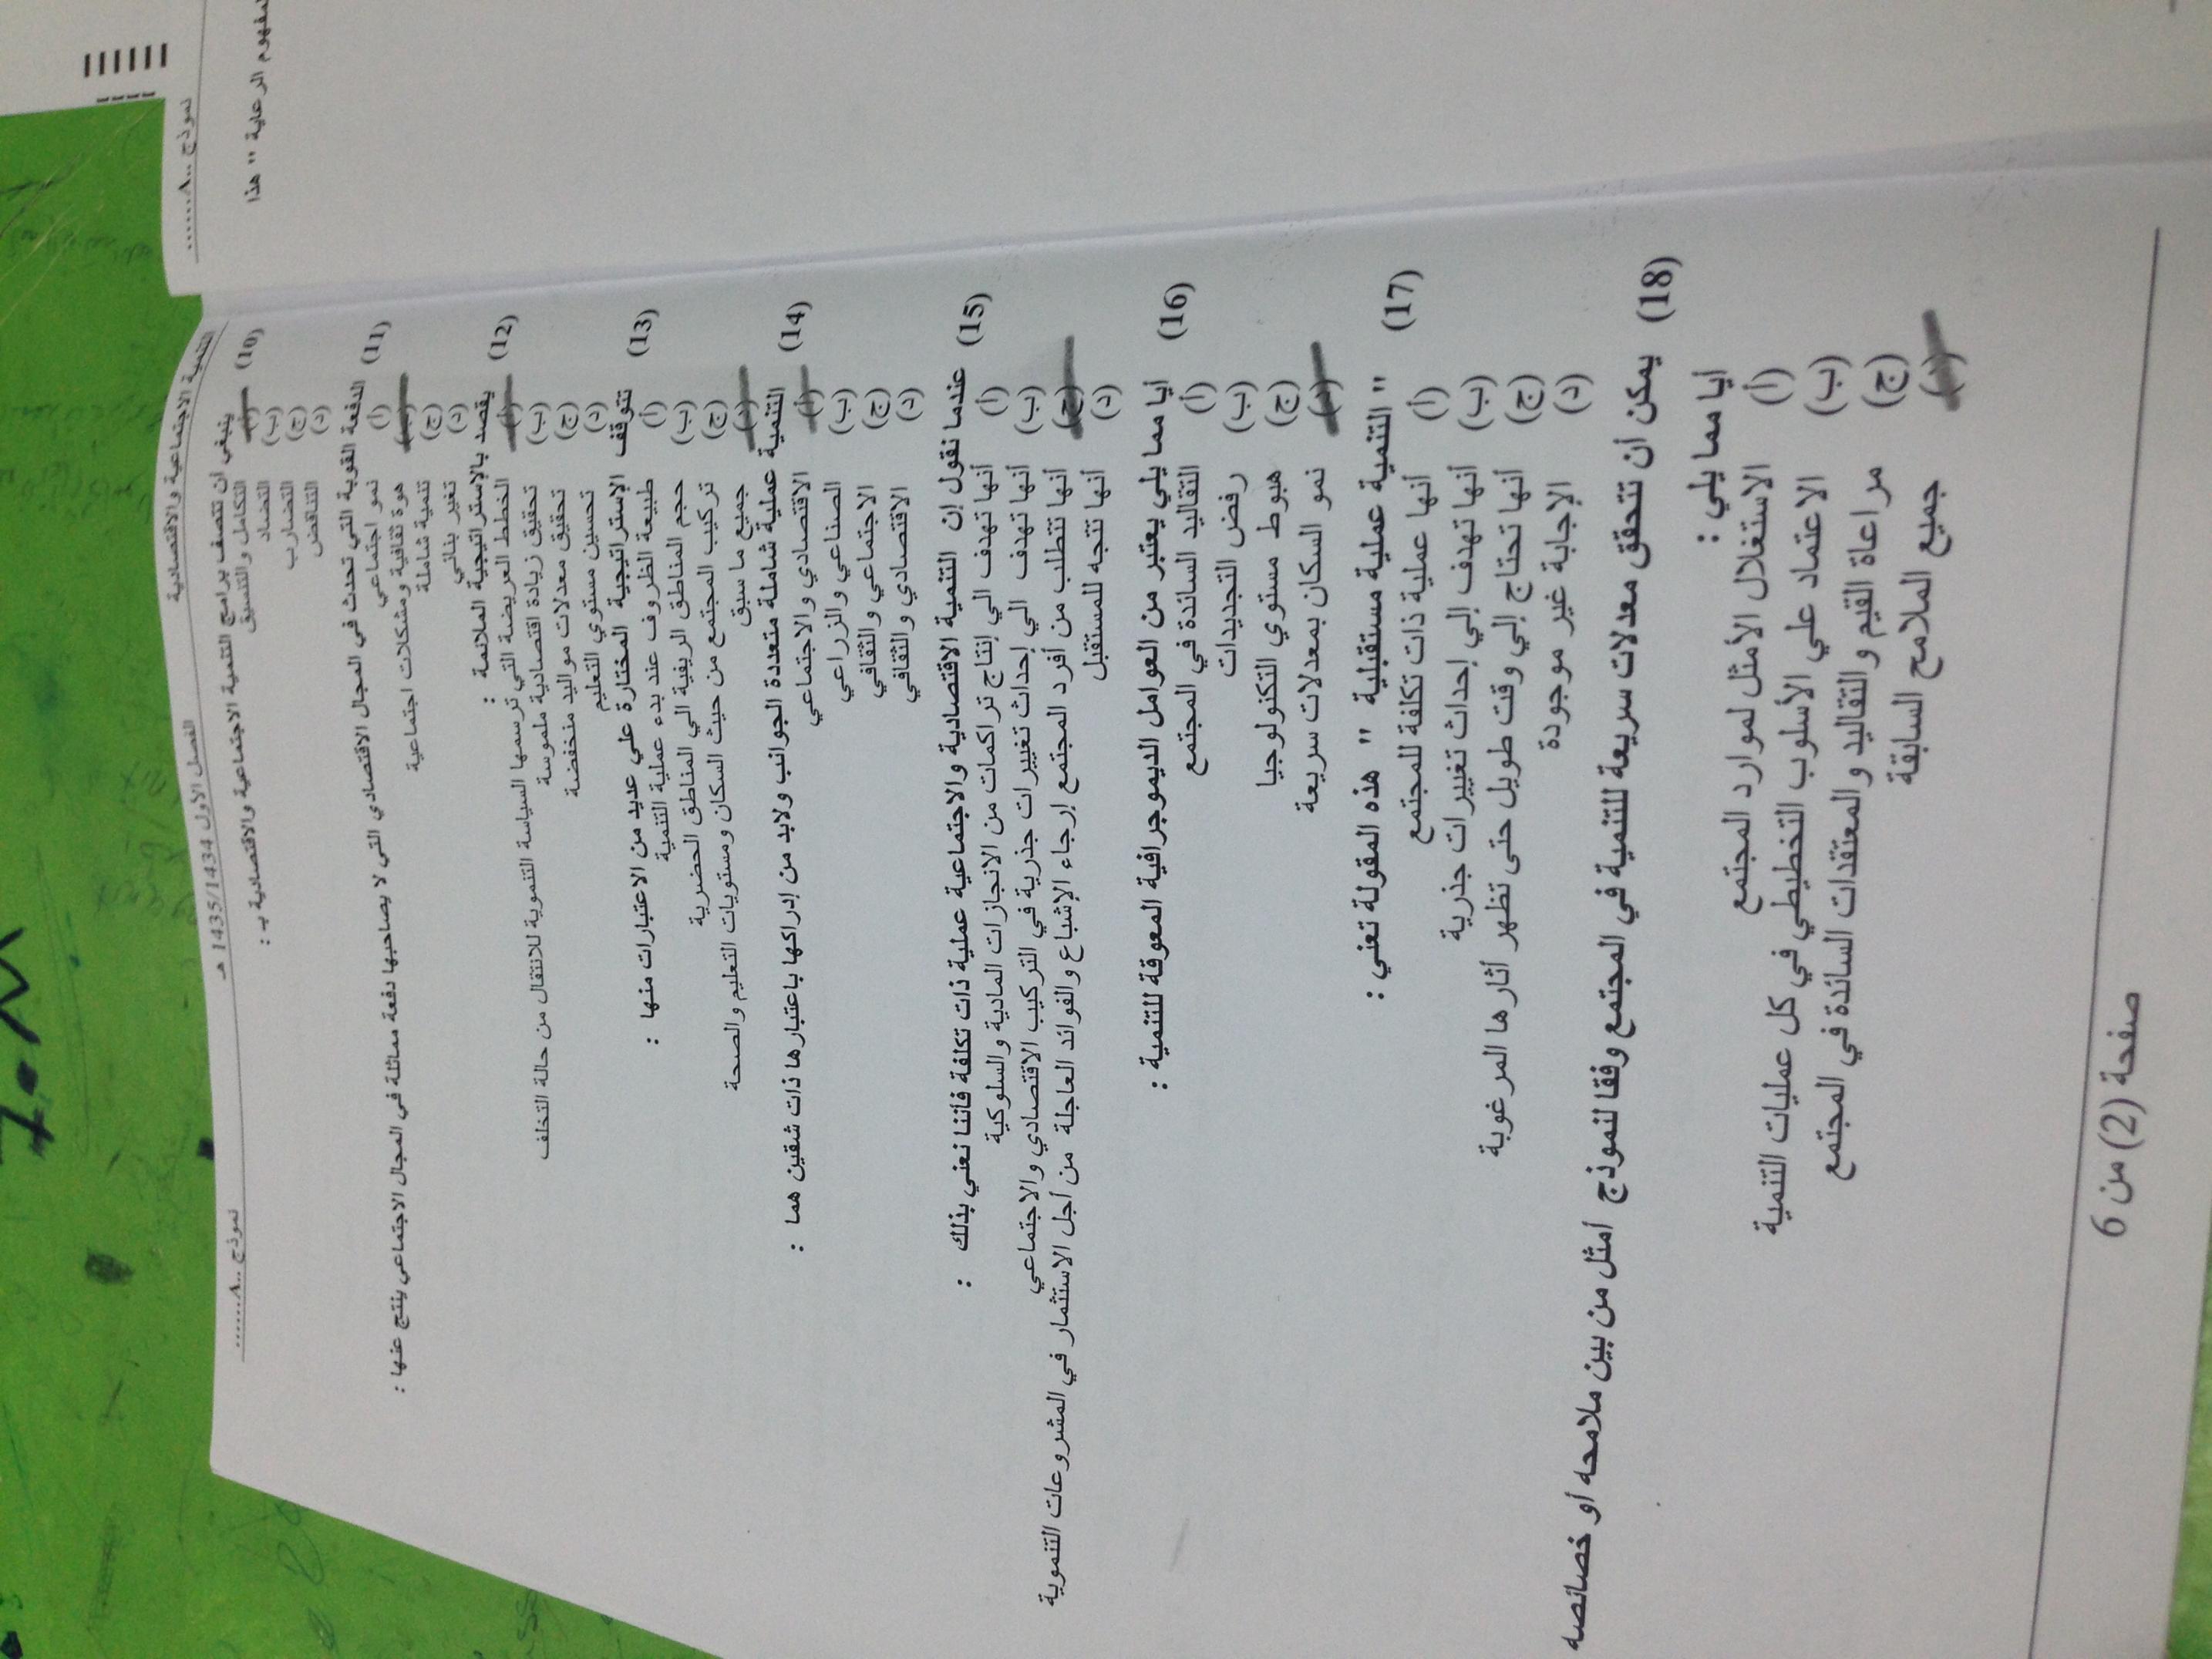 التنمية الاجتماعية والاقتصادية الفصل الأول 1435/1434 هـ نموذج ..A......
(10) ينبغي أن تتصف برامج التنمية الاجتماعية والاقتصادية بـ :
(أ) التكامل والتنسيق
(ب) التضاد
(ج) التضارب
(د) التناقض
(11) الدفعة القوية التي تحدث في المجال الاقتصادي التي لا يصاحبها دفعة مماثلة في المجال الاجتماعي ينتج عنها :
(أ) نمو اجتماعي
(ب) هوة ثقافية ومشكلات اجتماعية
(ج) تنمية شاملة
(د) تغير بنائي
(12) يقصد بالإستراتيجية الملائمة :
(أ) الخطط العريضة التي ترسمها السياسة التنموية للانتقال من حالة التخلف
(ب) تحقيق زيادة اقتصادية ملموسة
(ج) تحقيق معدلات مواليد منخفضة
(د) تحسين مستوي التعليم
(13) تتوقف الإستراتيجية المختارة علي عديد من الاعتبارات منها :
(أ) طبيعة الظروف عند بدء عملية التنمية
(ب) حجم المناطق الريفية الي المناطق الحضرية
(ج) تركيب المجتمع من حيث السكان ومستويات التعليم والصحة
(د) جميع ما سبق
(14) التنمية عملية شاملة متعددة الجوانب ولابد من إدراكها باعتبارها ذات شقين هما :
(أ) الاقتصادي والاجتماعي
(ب) الصناعي والزراعي
(ج) الاجتماعي والثقافي
(د) الاقتصادي والثقافي
(15) عندما نقول إن التنمية الاقتصادية والاجتماعية عملية ذات تكلفة فأننا نعني بذلك :
(أ) أنها تهدف الي إنتاج تراكمات من الانجازات المادية والسلوكية
(ب) أنها تهدف الي إحداث تغييرات جذرية في التركيب الاقتصادي والاجتماعي
(ج) أنها تتطلب من أفرد المجتمع إرجاء الإشباع والفوائد العاجلة من أجل الاستثمار في المشروعات التنموية
(د) أنها تتجه للمستقبل
(16) أيا مما يلي يعتبر من العوامل الديموجرافية المعوقة للتنمية :
(أ) التقاليد السائدة في المجتمع
(ب) رفض التجديدات
(ج) هبوط مستوي التكنولوجيا
(د) نمو السكان بمعدلات سريعة
(17) " التنمية عملية مستقبلية " هذه المقولة تعني :
(أ) أنها عملية ذات تكلفة للمجتمع
(ب) أنها تهدف إلي إحداث تغييرات جذرية
(ج) أنها تحتاج إلي وقت طويل حتى تظهر أثارها المرغوبة
(د) الإجابة غير موجودة
(18) يمكن أن تتحقق معدلات سريعة للتنمية في المجتمع وفقا لنموذج أمثل من بين ملامحه أو خصائصه
أيا مما يلي :
(أ) الاستغلال الأمثل لموارد المجتمع
(ب) الاعتماد علي الأسلوب التخطيطي في كل عمليات التنمية
(ج) مراعاة القيم والتقاليد والمعتقدات السائدة في المجتمع
(د) جميع الملامح السابقة
صفحة (2) من 6
نموذج ..A......
مفهوم الرعاية " هذا